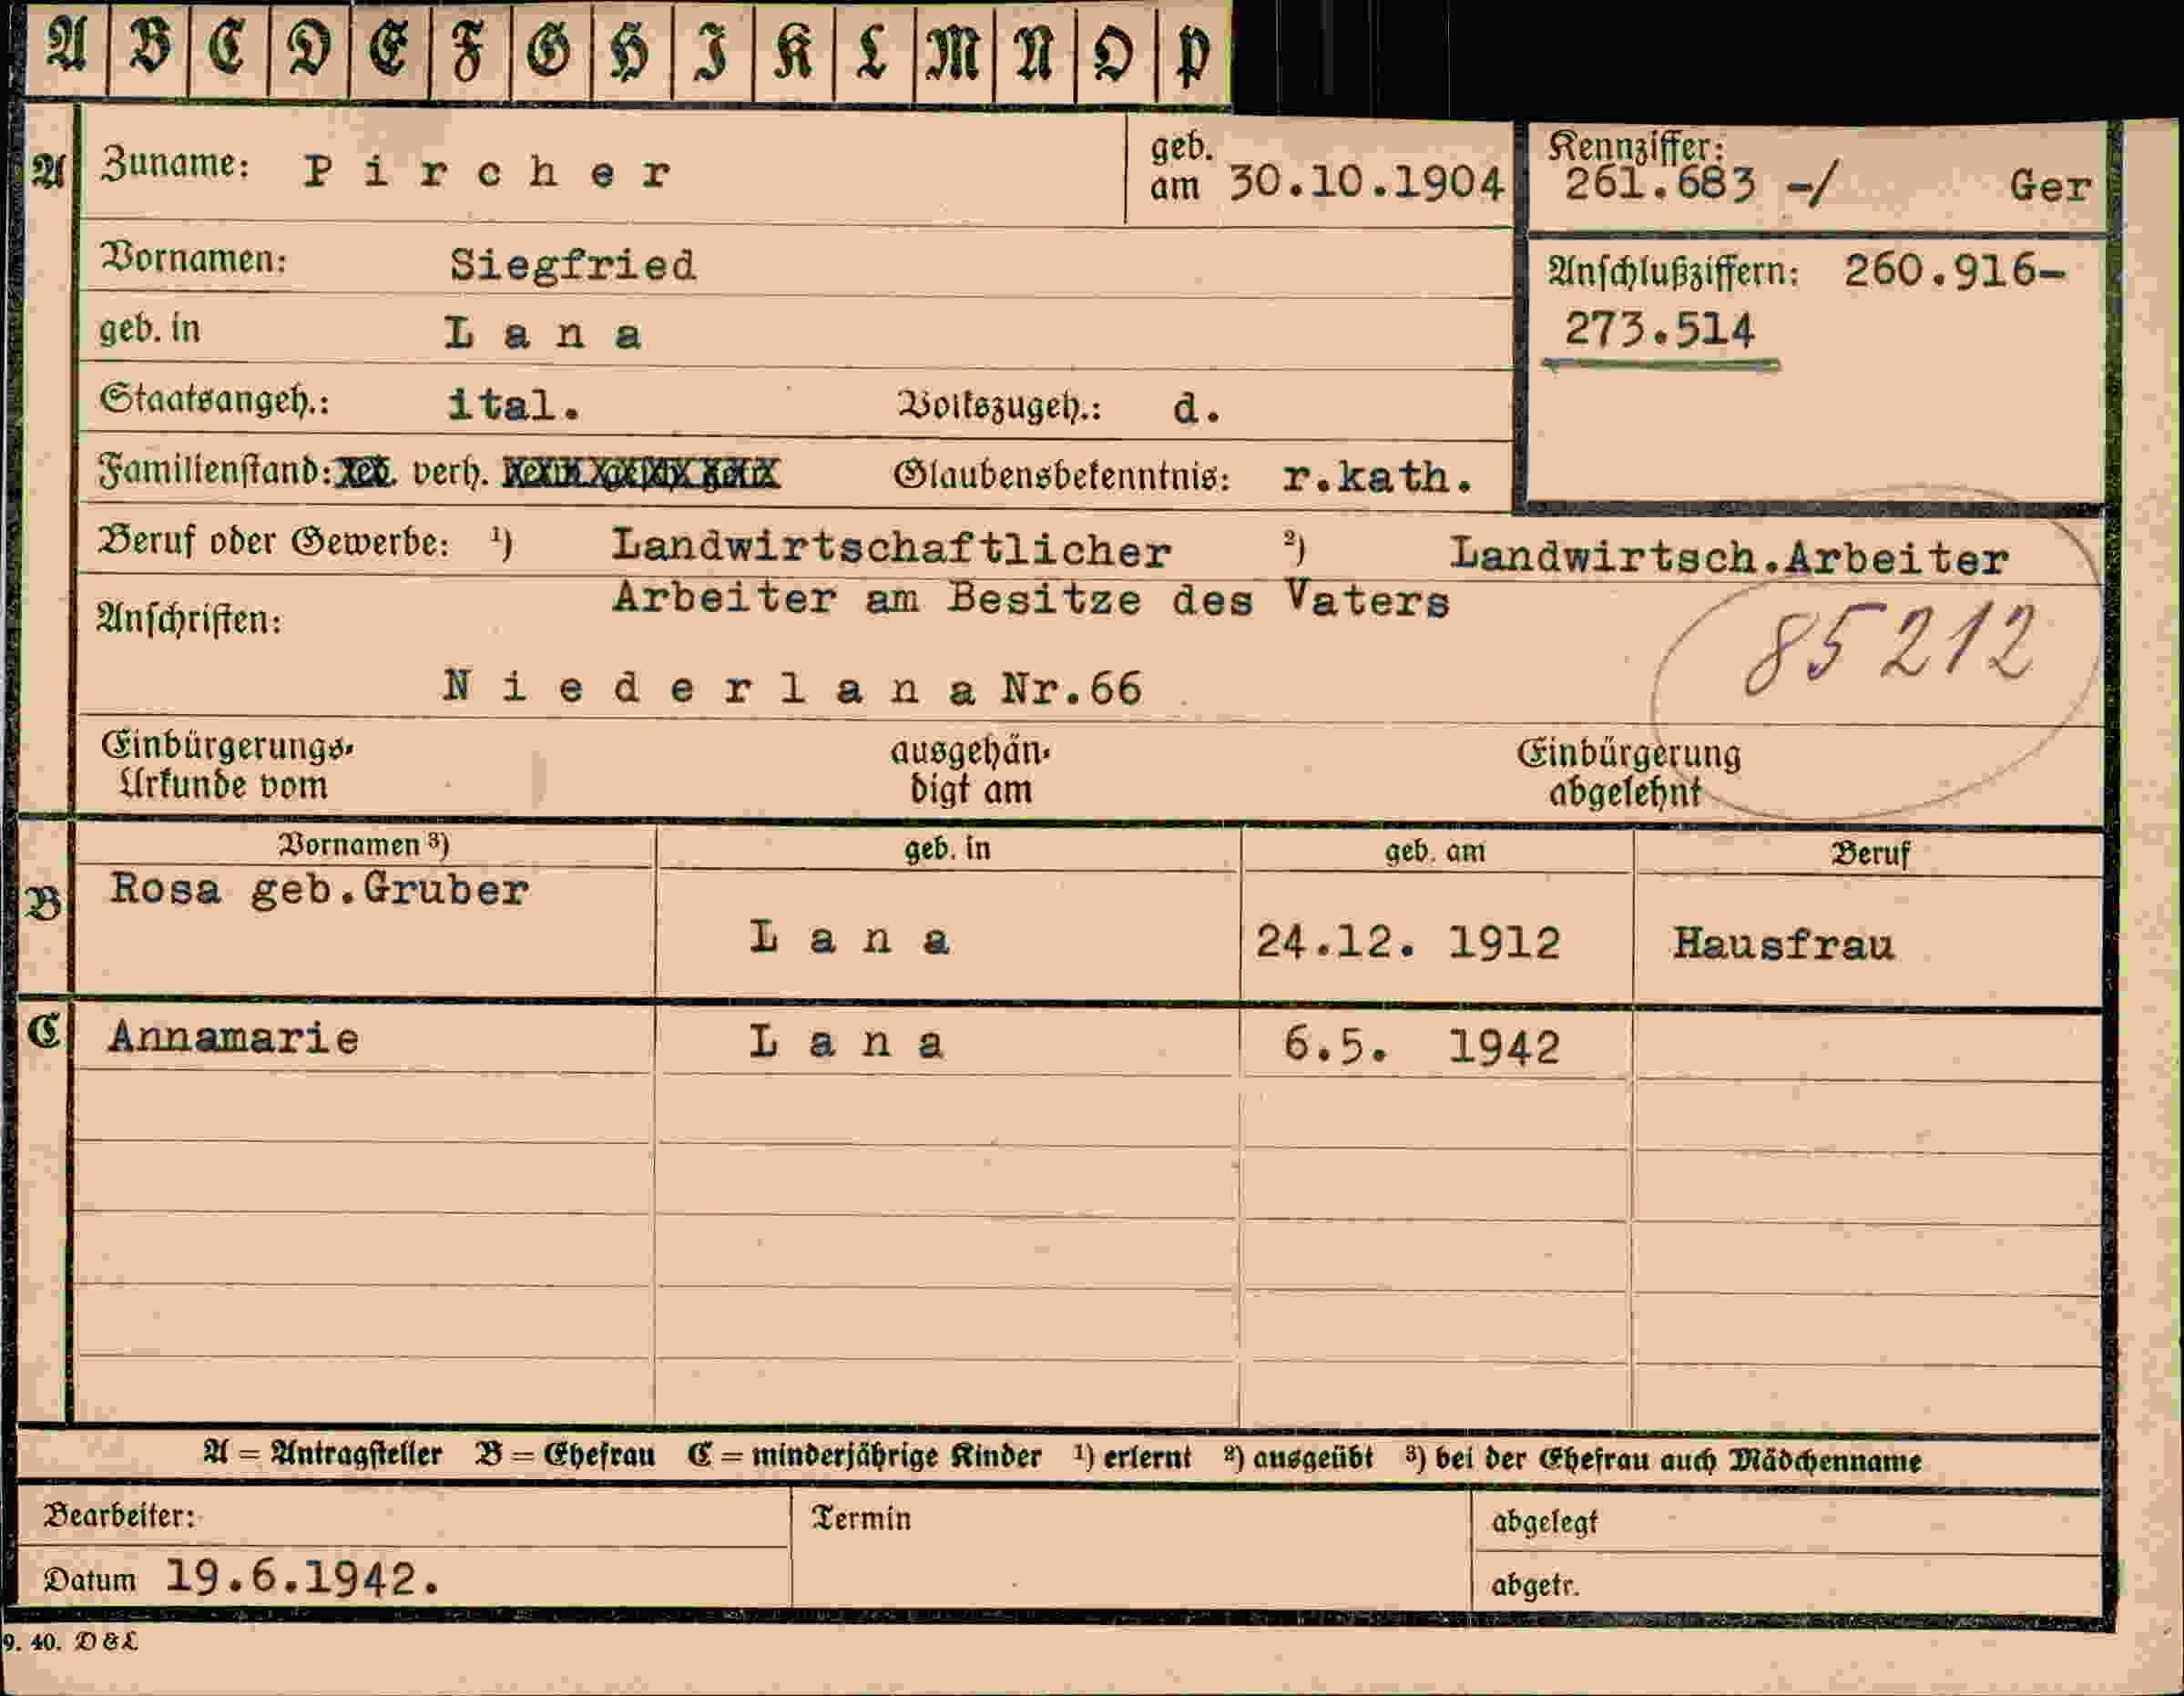 A B C D E F G H I K L M N O P
A Zuname: Pircher geb. am 30.10.1904 Kennziffer: 261.683 -/ Ger
Vornamen: Siegfried Anschlußziffern: 260.916-
geb. in Lana 273.514
Staatsangeh.: ital. Volkszugeh.: d.
Familienstand: verh. Glaubensbekenntnis: r.kath.
Beruf oder Gewerbe: ¹) Landwirtschaftlicher ²) Landwirtsch.Arbeiter
Arbeiter am Besitze des Vaters
Anschriften: 85212
Niederlana Nr.66
Einbürgerungs- ausgehän- Einbürgerung
Urkunde vom digt am abgelehnt
Vornamen ³) geb. in geb. am Beruf
B Rosa geb.Gruber
Lana 24.12. 1912 Hausfrau
C Annamarie Lana 6.5. 1942
A = Antragsteller B = Ehefrau C = minderjährige Kinder ¹) erlernt ²) ausgeübt ³) bei der Ehefrau auch Mädchenname
Bearbeiter: Termin abgelegt
Datum 19.6.1942. abgetr.
9. 40. D & L